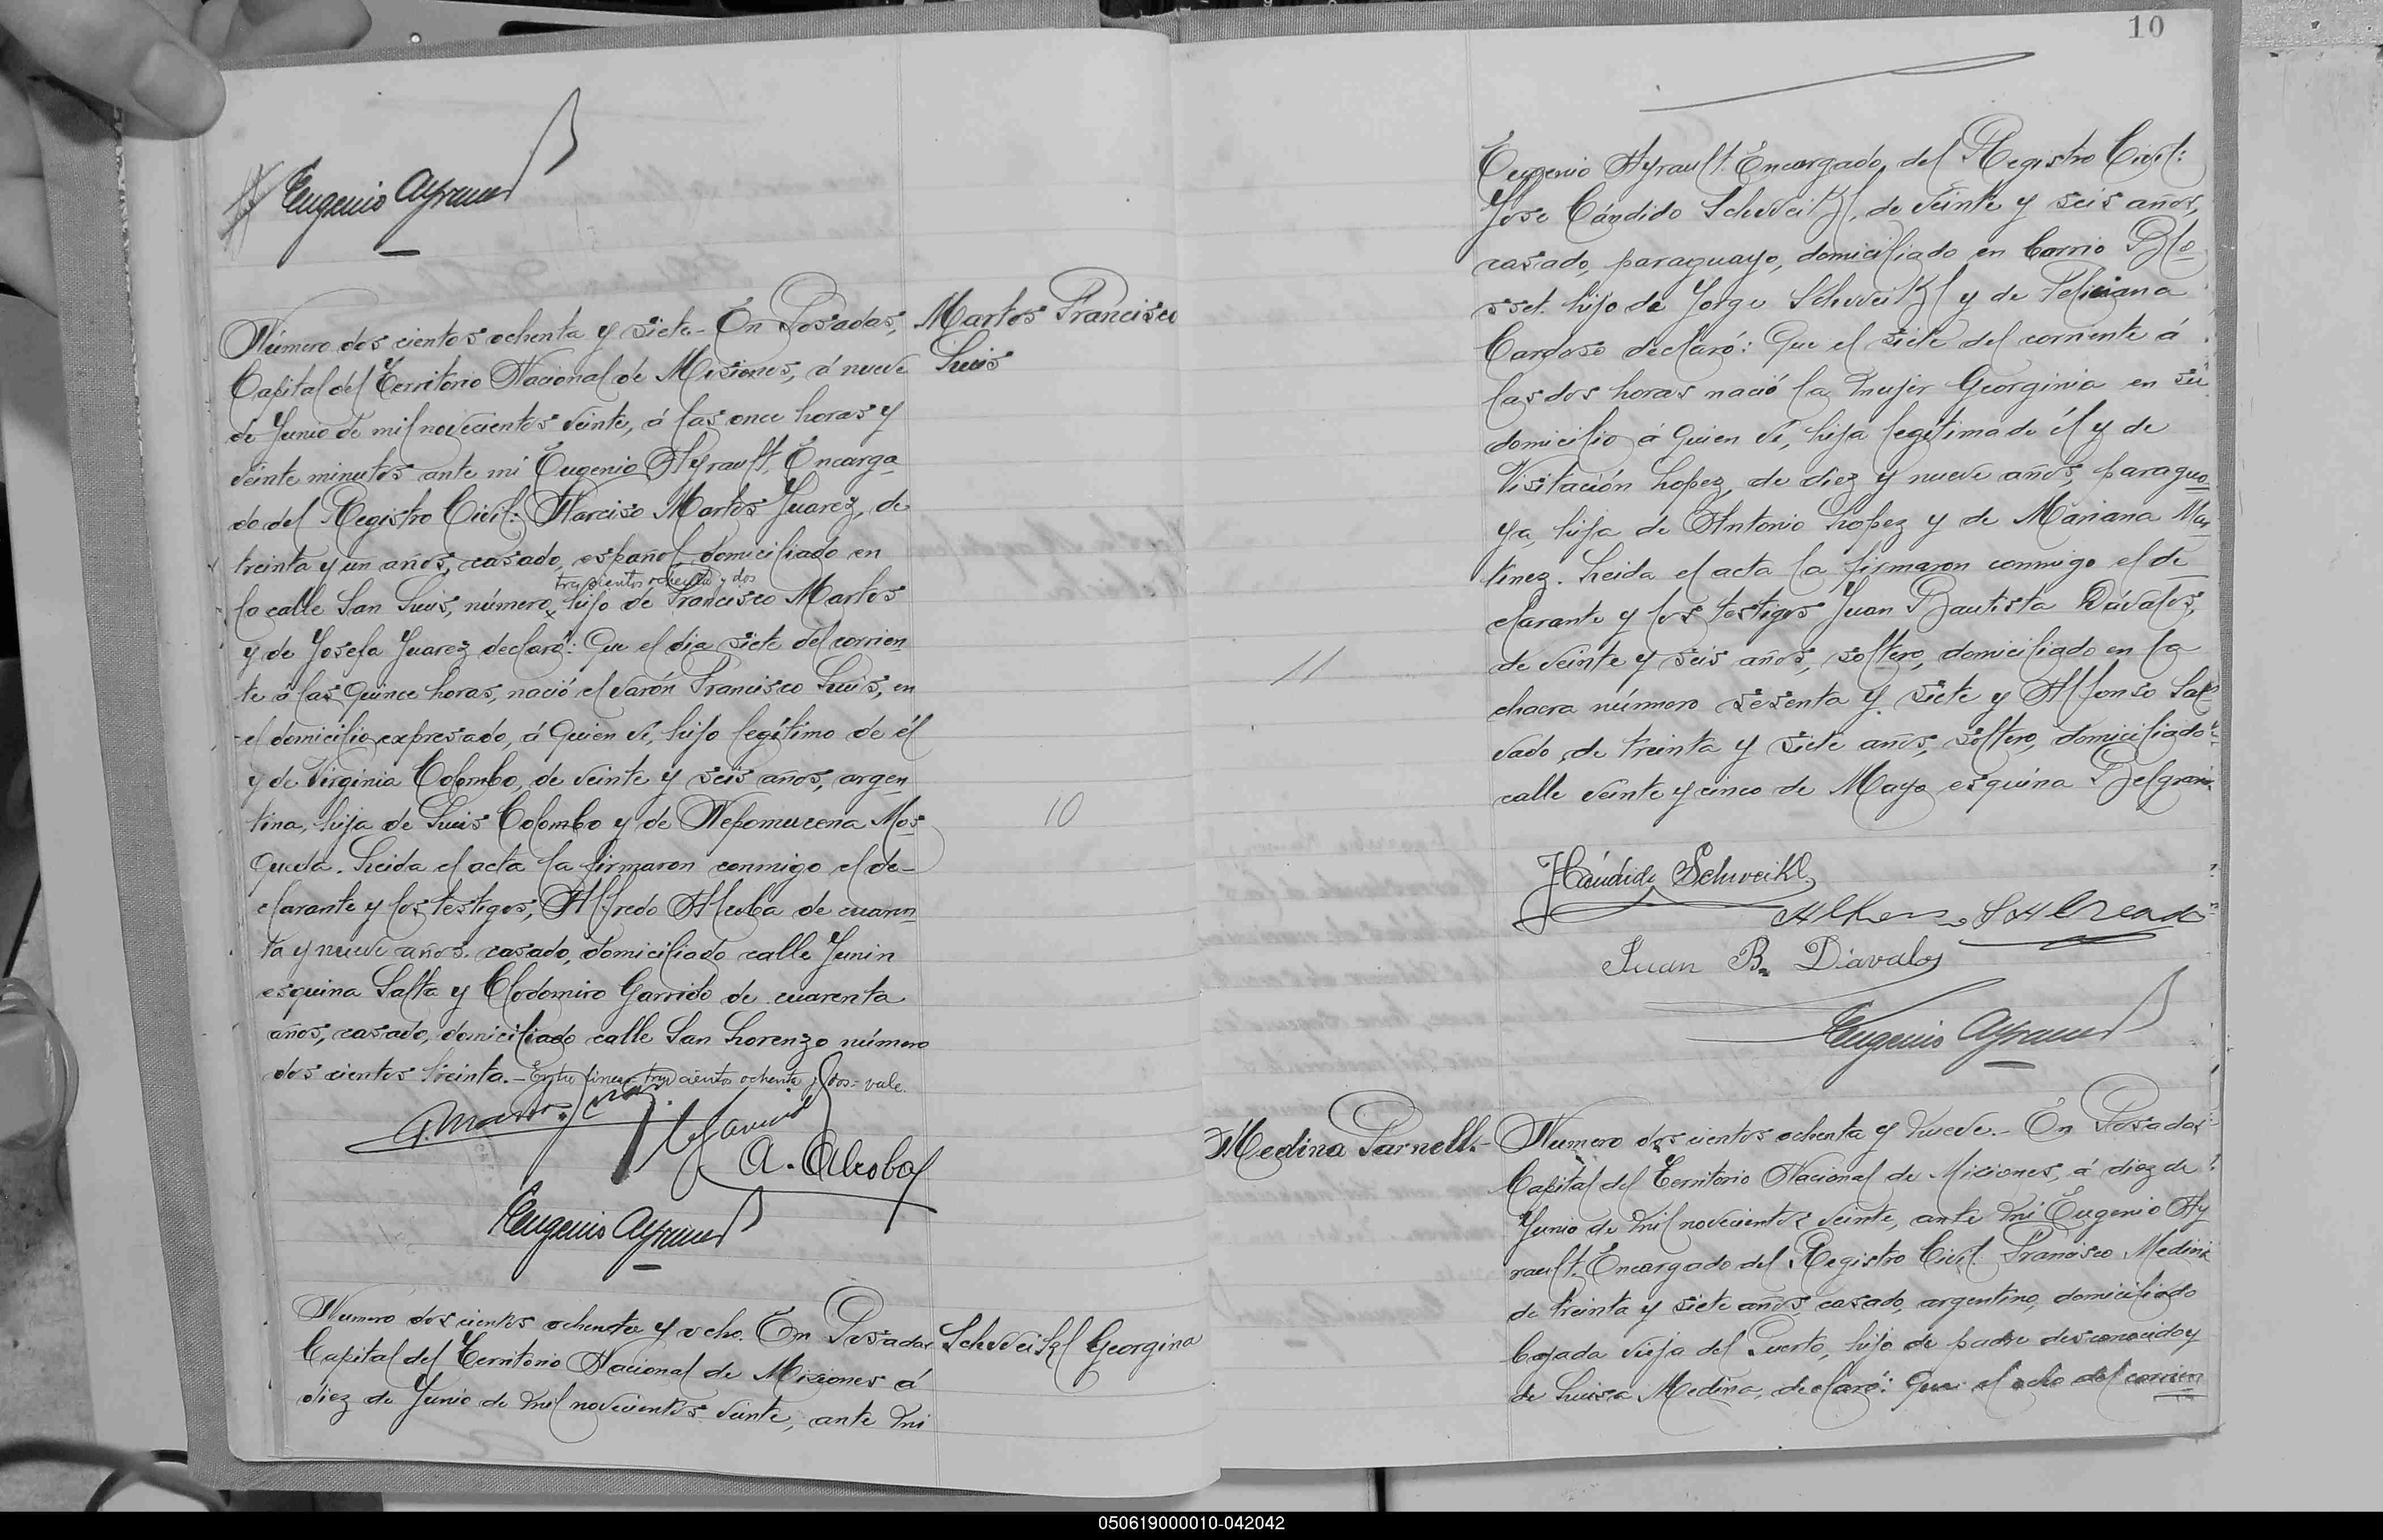 Eugenio Ayrault
Número dos cientos ochenta y siete.- En Posadas,
Capital del Territorio Nacional de Misiones, á nueve
de Junio de mil novecientos veinte, á las once horas y
veinte minutos ante mi Eugenio Ayrault, Encarga
do del Registro Civil: Narciso Martos Juarez, de
treinta y un años, casado, español domiciliado en
trescientos ochenta y dos
la calle San Luis, número x hijo de Francisco Martos
y de Josefa Juarez declaró: Que el dia siete del corrien
te á las quince horas, nació el varón Francisco Luis, en
el domicilio expresado, á quien ví, hijo legítimo de él
y de Virginia Colombo, de veinte y seis años, argen
tina, hija de Luis Colombo y de Nepomucena Mos
queda. Leida el acta la firmaron conmigo el de-
clarante y los testigos, Alfredo Alcoba de cuaren
ta y nueve años. casado, domiciliado calle Junin
esquina Salta y Clodomiro Garrido de cuarenta
años, casado, domiciliado calle San Lorenzo número
dos cientos treinta.- Entre lineas-trescientos ochenta y dos= vale.
A. Alcoba
Eugenio Ayrault
Martos Francisco
Luis
10
Numero dos cientos ochenta y ocho. En Posadas
Capital del Territorio Nacional de Misiones á
diez de Junio de mil novecientos veinte, ante mi
Schweikl Georgina
10
Eugenio Ayrault Encargado del Registro Civil:
Jose Cándido Schweikl, de veinte y seis años,
casado, paraguayo, domiciliado en barrio Blo
sset. hijo de Jorge Schweikl y de Feliciana
Cardoso declaró: Que el siete del corriente á
las dos horas nació la mujer Georginia en su
domicilio á quien ví, hija legítima de él y de
Visitación Lopez, de diez y nueve años, paragua
ya, hija de Antonio Lopez y de Mariana Mar
tinez. Leida el acta la firmaron conmigo el de
clarante y los testigos Juan Bautista Dávalos,
de veinte y seis años, soltero, domiciliado en la
chacra número sesenta y siete y Alfonso Sal
vado, de treinta y siete años, soltero, domiciliado
calle veinte y cinco de Mayo esquina Belgrano
11
J Cándido Schweikl
Juan B. Dávalos
Eugenio Ayrault
Medina Parnell.-
Numero dos cientos ochenta y nueve.- En Posadas
Capital del Territorio Nacional de Misiones, á diez de
Junio de mil novecientos veinte, ante mi Eugenio Ay
rault. Encargado del Registro Civil. Francisco Medina
de treinta y siete años, casado, argentino, domiciliado
bajada vieja del Puerto, hijo de padre desconocido y
de Luisa Medina, declaró: Que el ocho del corrien
050619000010-042042